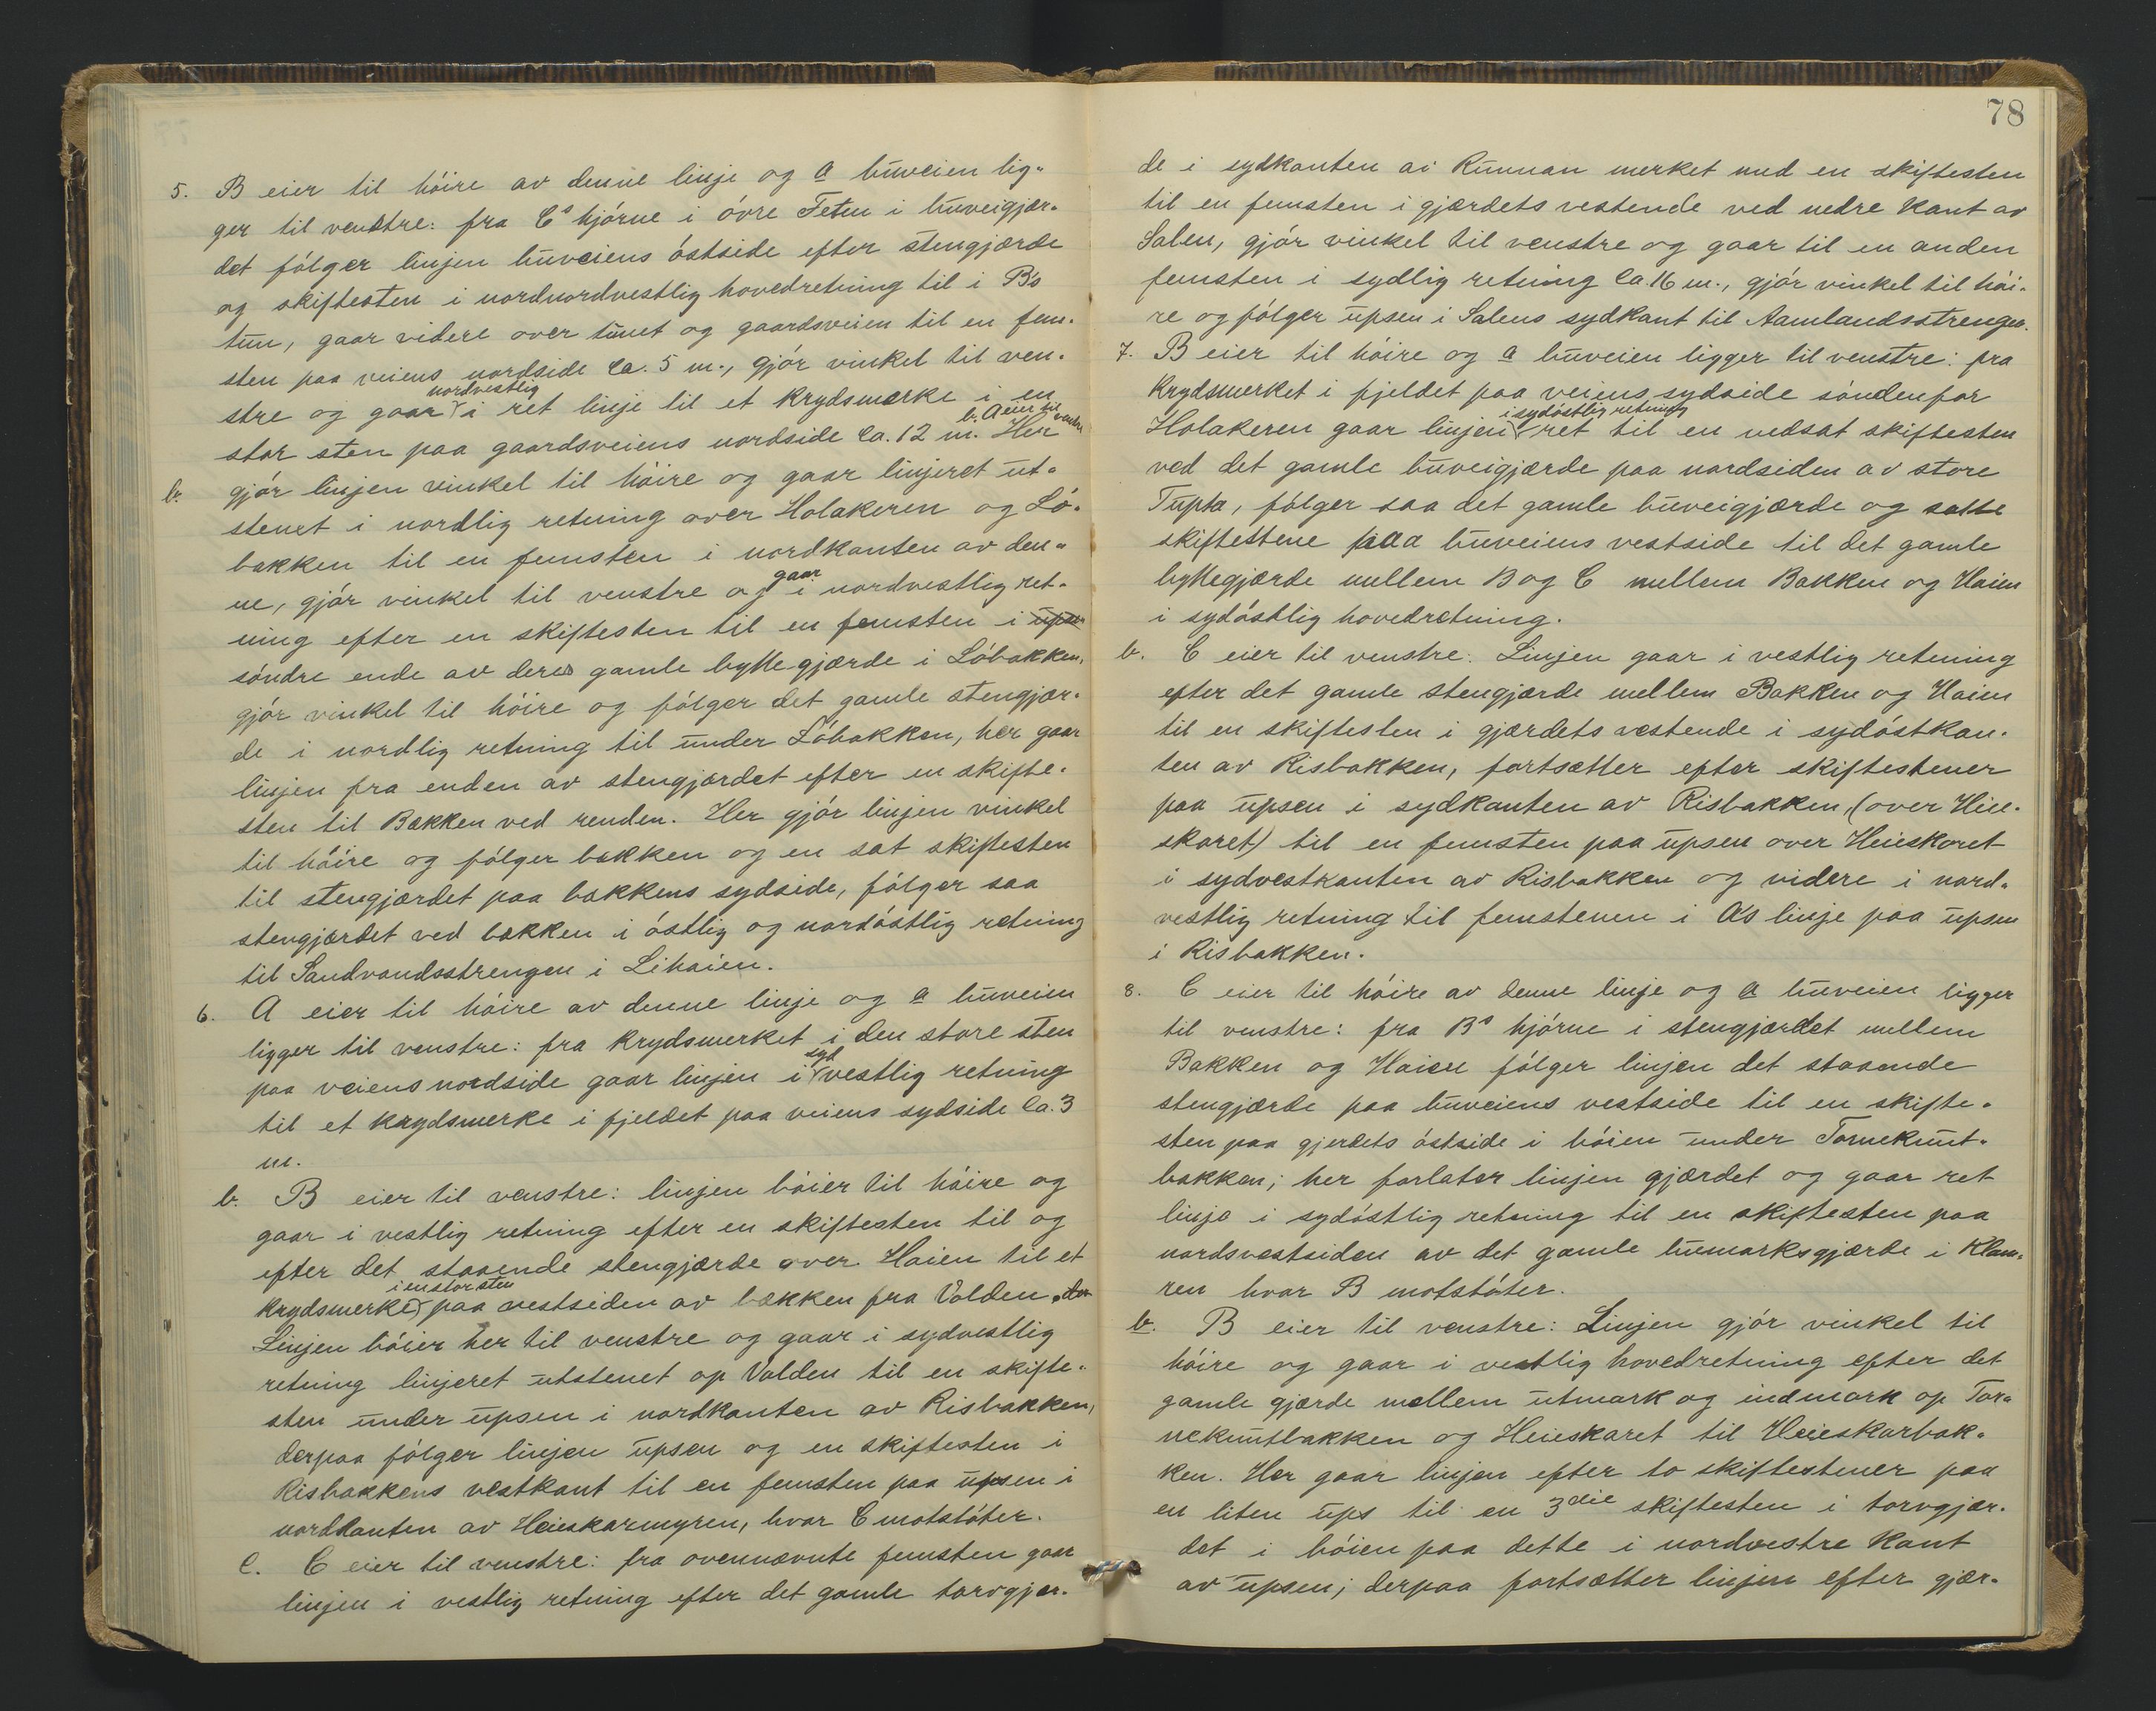 5. B eier til höire av denne linje og a buveien lig-
ger til venstre: fra Cs hjörne i övre Teten i buveigjær-
det fölger linjen buveiens östside efter stengjærde
og skiftesten i nordnordvestlig hovedretning til i B's
tun, gaar videre over tunet og gaardsveien til en fem-
sten paa veiens nordside ca. 5 m., gjör vinkel til ven-
nordvestlig
stre og gaar i ret linje til et krydsmærke i en
b. A eier til venstre
stor sten paa gaardsveiens nordside ca. 12 m. Her
b. gjör linjen vinkel til höire og gaar linjeret ut-
stenet i nordlig retning over Holakeren og Lö-
bakken til en femsten i nordkanten av den-
gaar
ne, gjör vinkel til venstre og i nordvestlig ret-
ning efter en skiftesten til en femsten i upsen
söndre ende av deres gamle byttegjærde i Löbakken,
gjör vinkel til höire og fölger det gamle stengjær-
de i nordlig retning til under Löbakken, her gaar
linjen fra enden av stengjærdet efter en skifte-
sten til Bækken ved renden. Her gjör linjen vinkel
til höire og fölger bækken og en sat skiftesten
til stengjærdet paa bækkens sydside, fölger saa
stengjærdet ved bækken i östlig og nordöstlig retning
til Sandvandsstrengen i Lihaien.
6. A eier til höire av denne linje og a buveien
ligger til venstre: fra krydsmerket i den store sten
syd
paa veiens nordside gaar linjen i vestlig retning
til et krydsmerke i fjeldet paa veiens sydside ca. 3
m.
b. B eier til venstre: linjen böier til höire og
gaar i vestlig retning efter en skiftesten til og
efter det staaende stengjærde over Haien til et
i en stor sten
krydsmerke paa vestsiden av bækken fra Volden.
Linjen böier her til venstre og gaar i sydvestlig
retning linjeret utstenet op Volden til en skifte-
sten under upsen i nordkanten av Risbakken,
derpaa fölger linjen upsen og en skiftesten i
Risbakkens vestkant til en femsten paa upsen i
nordkanten av Heieskarmyren, hvor C motstöter.
C. C eier til venstre: fra ovennævnte femsten gaar
linjen i vestlig retning efter det gamle torvgjær-
78
de i sydkanten av Runnan merket med en skiftesten
til en femsten i gjærdets vestende ved nedre kant av
Salen, gjör vinkel til venstre og gaar til en anden
femsten i sydlig retning ca. 16 m., gjör vinkel til höi-
re og fölger upsen i Salens sydkant til Aamlandsstrengen.
7. B eier til höire og a buveien ligger til venstre: fra
krydsmerket i fjeldet paa veiens sydside söndenfor
i sydöstlig retning
Holakeren gaar linjen ret til en nedsat skiftesten
ved det gamle buveigjærde paa nordsiden av store
Tupta, fölger saa det gamle buveigjærde og satte
skiftestene paa buveiens vestside til det gamle
byttegjærde mellem B og C mellem Bakken og Haien
i sydöstlig hovedretning.
b. C eier til venstre: Linjen gaar i vestlig retning
efter det gamle stengjærde mellem Bakken og Haien
til en skiftesten i gjærdets vestende i sydöstkan-
ten av Risbakken, fortsætter efter skiftestener
paa upsen i sydkanten av Risbakken, (over Heie-
skaret) til en femsten paa upsen over Heieskaret
i sydvestkanten av Risbakken og videre i nord-
vestlig retning til femstenen i A's linje paa upsen
i Risbakken.
8. C eier til höire av denne linje og a buveien ligger
til venstre: fra Bs hjörne i stengjærdet mellem
Bakken og Haien fölger linjen det staaende
stengjærde paa buveiens vestside til en skifte-
sten paa gjerdets östside i böien under Tornekunt-
bakken; her forlater linjen gjærdet og gaar ret
linje i sydöstlig retning til en skiftesten paa
nordvestsiden av det gamle bumarksgjærde i Klam-
ren hvor B motstöter.
b. B eier til venstre: Linjen gjör vinkel til
höire og gaar i vestlig hovedretning efter det
gamle gjærde mellem utmark og indmark op Tor-
nekuntbakken og Heieskaret til Heieskarbak-
ken. Her gaar linjen efter to skiftestener paa
en liten ups til en 3die skiftesten i torvgjær-
det i böien paa dette i nordvestre kant
av upsen; derpaa fortsætter linjen efter gjær-